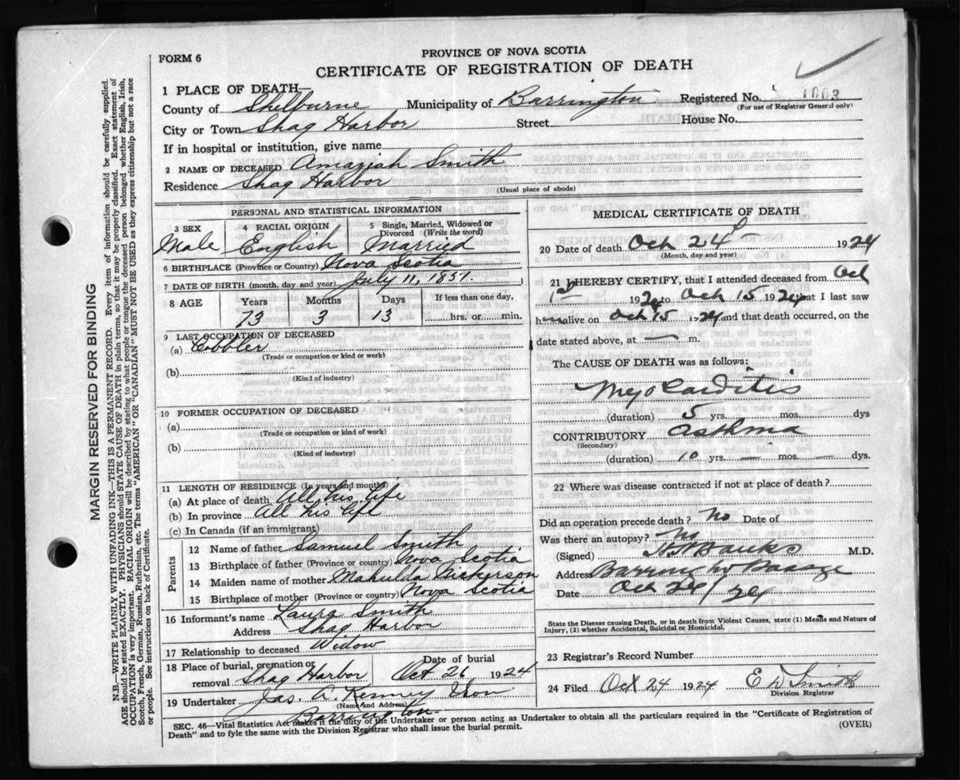 FORM 6
PROVINCE OF NOVA SCOTIA
CERTIFICATE OF REGISTRATION OF DEATH
1 PLACE OF DEATH—
County of Shelburne Municipality of Barrington Registered No. 1003
(For use of Registrar General only)
City or Town Shag Harbor Street House No.
If in hospital or institution, give name
2 NAME OF DECEASED Amaziah Smith
Residence Shag Harbor
(Usual place of abode)
PERSONAL AND STATISTICAL INFORMATION
3 SEX 4 RACIAL ORIGIN 5 Single, Married, Widowed or Divorced (Write the word)
Male English Married
6 BIRTHPLACE (Province or Country) Nova Scotia
7 DATE OF BIRTH (month, day and year) July 11, 1851.
8 AGE Years Months Days If less than one day,
73 3 13 hrs. or min.
9 LAST OCCUPATION OF DECEASED
(a) Cobbler
(Trade or occupation or kind or work)
(b)
(Kind of industry)
10 FORMER OCCUPATION OF DECEASED
(a)
(Trade or occupation or kind of work)
(b)
(Kind of industry)
11 LENGTH OF RESIDENCE (In years and months)
(a) At place of death All his life
(b) In province All his life
(c) In Canada (if an immigrant)
Parents
12 Name of father Samuel Smith
13 Birthplace of father (Province or country) Nova Scotia
14 Maiden name of mother Mahulda Nickerson
15 Birthplace of mother (Province or country) Nova Scotia
16 Informant's name Laura Smith
Address Shag Harbor
17 Relationship to deceased Widow
18 Place of burial, cremation or removal Shag Harbor Date of burial Oct 26 1924
19 Undertaker Jas. A. Kenney & Son
(Name and Address)
Barrington
MEDICAL CERTIFICATE OF DEATH
20 Date of death Oct 24 1924
(Month, day and year)
21 I HEREBY CERTIFY, that I attended deceased from Oct
1st 1924 to Oct 15 1924 that I last saw
him alive on Oct 15 1924 and that death occurred, on the
date stated above, at — m.
The CAUSE OF DEATH was as follows:
Myocarditis
(duration) 5 yrs. mos. dys
CONTRIBUTORY Asthma
(Secondary)
(duration) 10 yrs. — mos. — dys.
22 Where was disease contracted if not at place of death?
Did an operation precede death? No Date of
Was there an autopsy? No
(Signed) Banks M.D.
Address Barrington Passage
Date Oct 24/24
State the Disease Causing Death, or in death from Violent Causes, state (1) Means and Nature of Injury, (2) whether Accidental, Suicidal or Homicidal.
23 Registrar's Record Number
24 Filed Oct 24 1924 E D Smith
Division Registrar
SEC. 46—Vital Statistics Act makes it the duty of the Undertaker or person acting as Undertaker to obtain all the particulars required in the "Certificate of Registration of
Death" and to fyle the same with the Division Registrar who shall issue the burial permit.
(OVER)
MARGIN RESERVED FOR BINDING
N.B.—WRITE PLAINLY WITH UNFADING INK—THIS IS A PERMANENT RECORD. Every item of information should be carefully supplied.
AGE should be stated EXACTLY. PHYSICIANS should STATE CAUSE OF DEATH in plain terms, so that it may be properly classified. Exact statement of
OCCUPATION is very important. RACIAL ORIGIN will be described by stating to what people or tongue the deceased person belonged whether English, Irish,
Scotch, French, German, Russian, Ruthenian, etc. The terms "AMERICAN" OR "CANADIAN" MUST NOT BE USED as they express citizenship but not a race
or people. See instructions on back of Certificate.